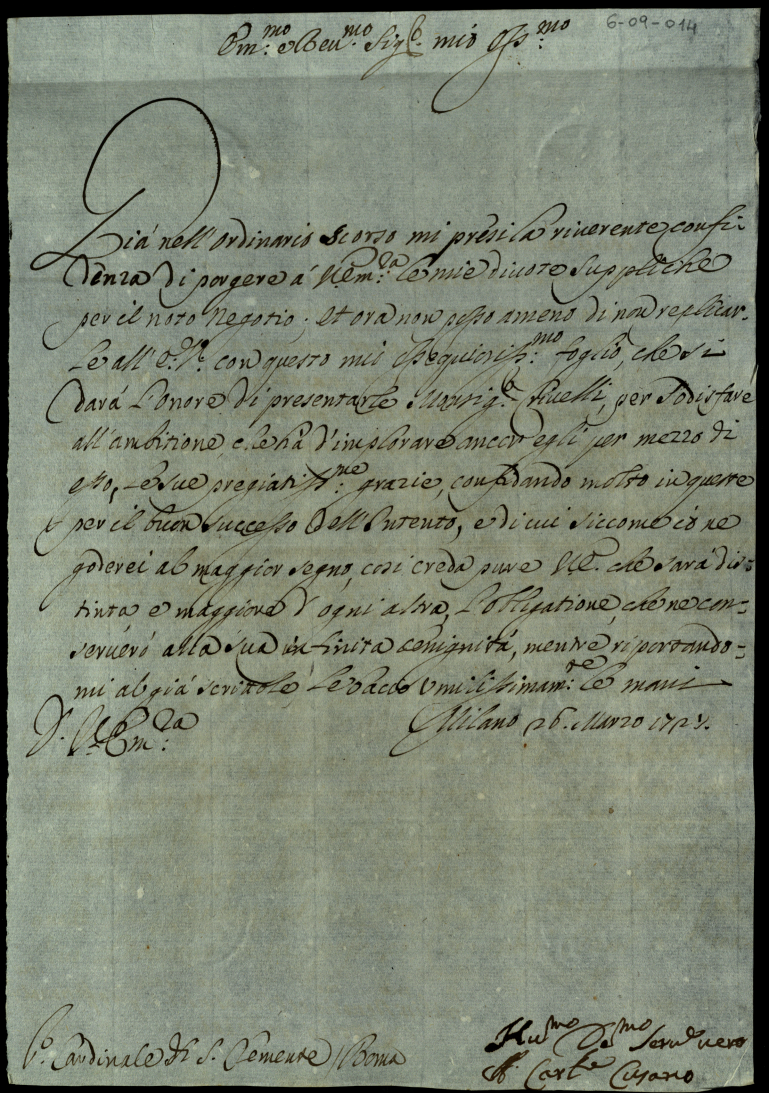 6-09-014
Em.mo e Reu.mo Sig.r mio Oss.mo
Già nell'ordinario scorso mi presi la riuerente confi-
denza di porgere á V.Em.za le mie diuote suppliche
per il noto Negotio; et ora non posso ameno di non replicar-
le all'E.V. con questo mio ossequiosiss.mo foglio, che si
dará l'onore di presentarle Monsig.r Criuelli, per sodisfare
all'ambitione, che há d'implorare ancor egli per mezzo di
esso, le sue pregiatiss.me grazie, confidando molto in queste
per il buon successo dell'Intento, e di cui siccome io ne
goderei al maggior segno, cosi creda pure V.E. che sará dis-
tinta e maggiore d'ogni altra, l'obligatione, che ne con-
serueró alla sua infinita benignitá, mentre riportando-
mi al giá scrittole, le bacio umilissimam.te le mani
D. V.Em.za Milano 26. Marzo 1727.
S.r Cardinale di S. Clemente / Roma
Hu.mo De.mo Seru.r uero
Il Car.le Cusano